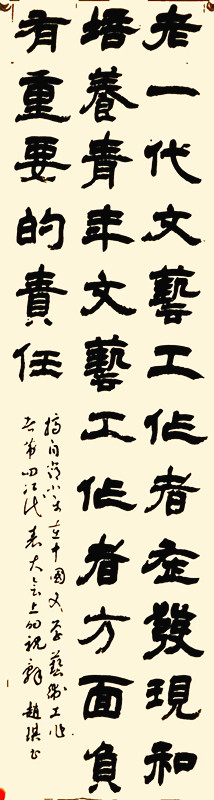 老一代文藝工作者在發現和
培養青年文藝工作者方面負
有重要的責任
摘自邓小平在中國文学藝術工作
者第四次代表大会上的祝辭